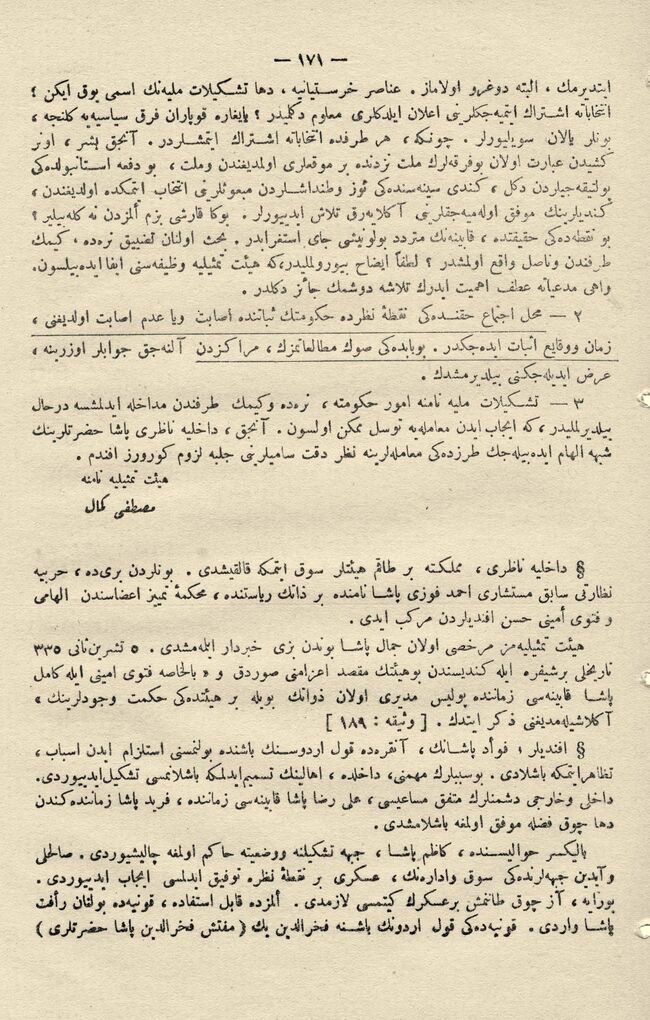 — ١٧١ —
ایتدیرمك ، البته دوغرو اولاماز . عناصر خرستیانیه ، دها تشكیلات ملیه‌نك اسمی یوق ایكن ؟
انتخاباته اشتراك ایتمیه‌جكلرینی اعلان ایلدكلری معلوم دكلمیدر ؟ یایغاره قوپاران فرق سیاسیه‌یه كلنجه ،
بونلر یالان سویلیورلر . چونكه ، هر طرفده انتخاباته اشتراك ایتمشلردر . آنجق بشر ، اونر
كشیدن عبارت اولان بوفرقه‌لرك ملت نزدنده بر موقعلری اولمدیغندن وملت ، بو دفعه استانبولده‌كی
پولتیقه‌جیلردن دكل ، كندی سینه‌سنده‌كی اوز وطنداشلردن مبعوثلرینی انتخاب ایتمكده اولدیغندن ،
كندیلرینك موفق اوله‌میه‌جقلرینی آكلایه‌رق تلاش ایدییورلر . بوكا قارشی بزم المزدن نه كله‌بیلیر ؟
بو نقطه‌ده‌كی حقیقتده ، قابینه‌نك متردد بولونیشی جای استغرابدر . بحث اولنان تضییق نره‌ده ، كیمك
طرفندن وناصل واقع اولمشدر ؟ لطفاً ایضاح بیورولملیدر،كه هیئت تمثیلیه وظیفه‌سنی ایفا ایده‌بیلسون.
واهی مدعیاته عطف اهمیت ایدرك تلاشه دوشمك جائز دكلدر .
٢ — محل اجتماع حقنده‌كی نقطهٔ نظرده حكومتك ثباتنده اصابت ویا عدم اصابت اولدیغنی ،
زمان ووقایع اثبات ایده‌جكدر . بوبابده‌كی صوك مطالعاتمزك ، مراكزدن آلنه‌جق جوابلر اوزرینه ،
عرض ایدیله‌جكنی بیلدیرمشدك .
٣ — تشكیلات ملیه نامنه امور حكومته ، نره‌ده وكیمك طرفندن مداخله ایدلمشسه درحال
بیلدیرلملیدر ،كه ایجاب ایدن معامله‌یه توسل ممكن اولسون . آنجق ، داخلیه ناظری پاشا حضرتلرینك
شبهه الهام ایده‌بیله‌جك طرزده‌كی معامله‌لرینه نظر دقت سامیلرینی جلبه لزوم كورورز افندم .
هیئت تمثیلیه نامنه
مصطفی كمال
§ داخلیه ناظری ، مملكته بر طاقم هیئتلر سوق ایتمكه قالقیشدی . بونلردن بری‌ده ، حربیه
نظارتی سابق مستشاری احمد فوزی پاشا نامنده بر ذاتك ریاستنده ، محكمهٔ تمییز اعضاسندن الهامی
و فتوی أمینی حسن افندیلردن مركب ایدی .
هیئت تمثیلیه‌مز مرخصی اولان جمال پاشا بوندن بزی خبردار ایله‌مشدی . ٥ تشرین‌ثانی ٣٣٥
تاریخلی برشیفره ایله كندیسندن بوهیئتك مقصد اعزامنی صوردق و « بالخاصه فتوی امینی ایله كامل
پاشا قابینه‌سی زماننده پولیس مدیری اولان ذواتك بویله بر هیئتده‌كی حكمت وجودلرینك »
آكلاشیله‌مدیغنی ذكر ایتدك . [ وثیقه : ١٨٩ ]
§ افندیلر ؛ فوأد پاشانك ، آنقره‌ده قول اردوسنك باشنده بولنمسنی استلزام ایدن اسباب ،
تظاهر ایتمكه باشلادی . بوسببلرك مهمنی، داخلده ، اهالینك تسمیم ایدلمكه باشلانمسی تشكیل ایدییوردی.
داخلی وخارجی دشمنلرك متفق مساعیسی ، علی رضا پاشا قابینه‌سی زماننده ، فرید پاشا زماننده‌كندن
دها چوق فضله موفق اولمغه باشلامشدی .
بالیكسر حوالیسنده ، كاظم پاشا ، جبهه تشكیلنه ووضعیته حاكم اولمغه چالیشیوردی . صالحلی
وآیدین جبهه‌لرنده‌كی سوق واداره‌نك ، عسكری بر نقطهٔ نظره توفیق ایدلمسی ایجاب ایدییوردی .
بورایه ، آز چوق طانلمش برعسكرك كیتمسی لازمدی . المزده قابل استفاده ، قونیه‌ده بولنان رأفت
پاشا واردی . قونیه‌ده‌كی قول اردونك باشنه فخرالدین بك ( مفتش فخرالدین پاشا حضرتلری )